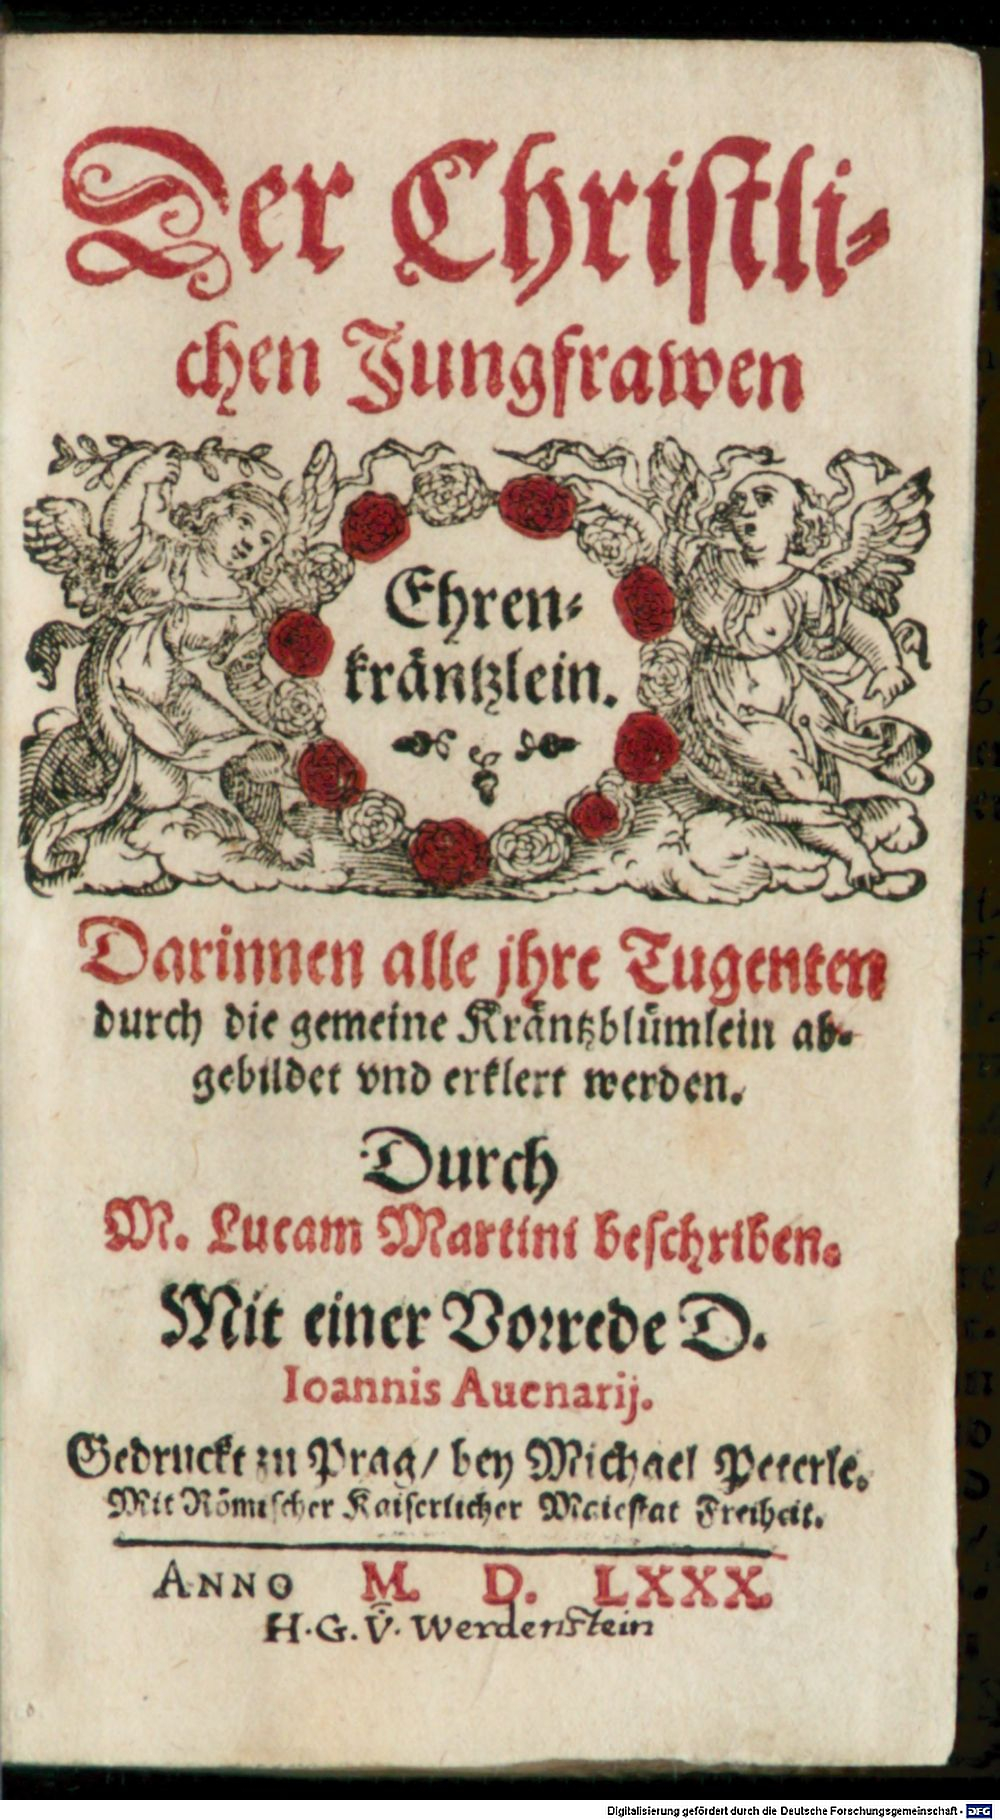 Der Christli-
chen Jungfrawen
Ehren-
kräntzlein.
Darinnen alle jhre Tugenten
durch die gemeine Kräntzblümlein ab-
gebildet vnd erklert werden.
Durch
M. Lucam Martini beschriben.
Mit einer Vorrede D.
Ioannis Auenarij.
Gedruckt zu Prag/ bey Michael Peterle.
Mit Römischer Kaiserlicher Maiestat Freiheit.
ANNO M. D. LXXX.
H. G. V. Werdenstein
Digitalisierung gefördert durch die Deutsche Forschungsgemeinschaft - DFG